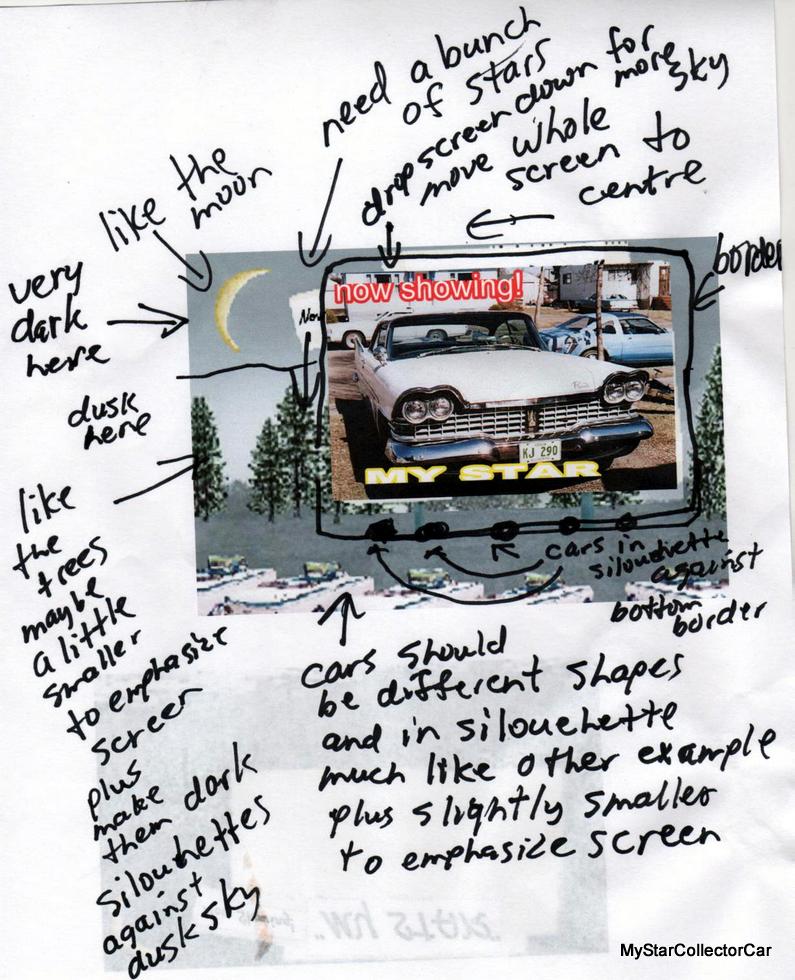 need a bunch
of stars
drop screen down for
more
sky
move whole
screen to
centre
like the
moon
very
dark
here
border
dusk
here
now showing!
Now
KJ 290
MY STAR
like
the
trees
maybe
a little
smaller
to emphasize
screen
plus
make
them dark
silouhettes
against
dusk sky
cars in
silouhette
against
bottom
border
cars should
be different shapes
and in silouehette
much like other example
plus slightly smaller
to emphasize screen
MyStarCollectorCar